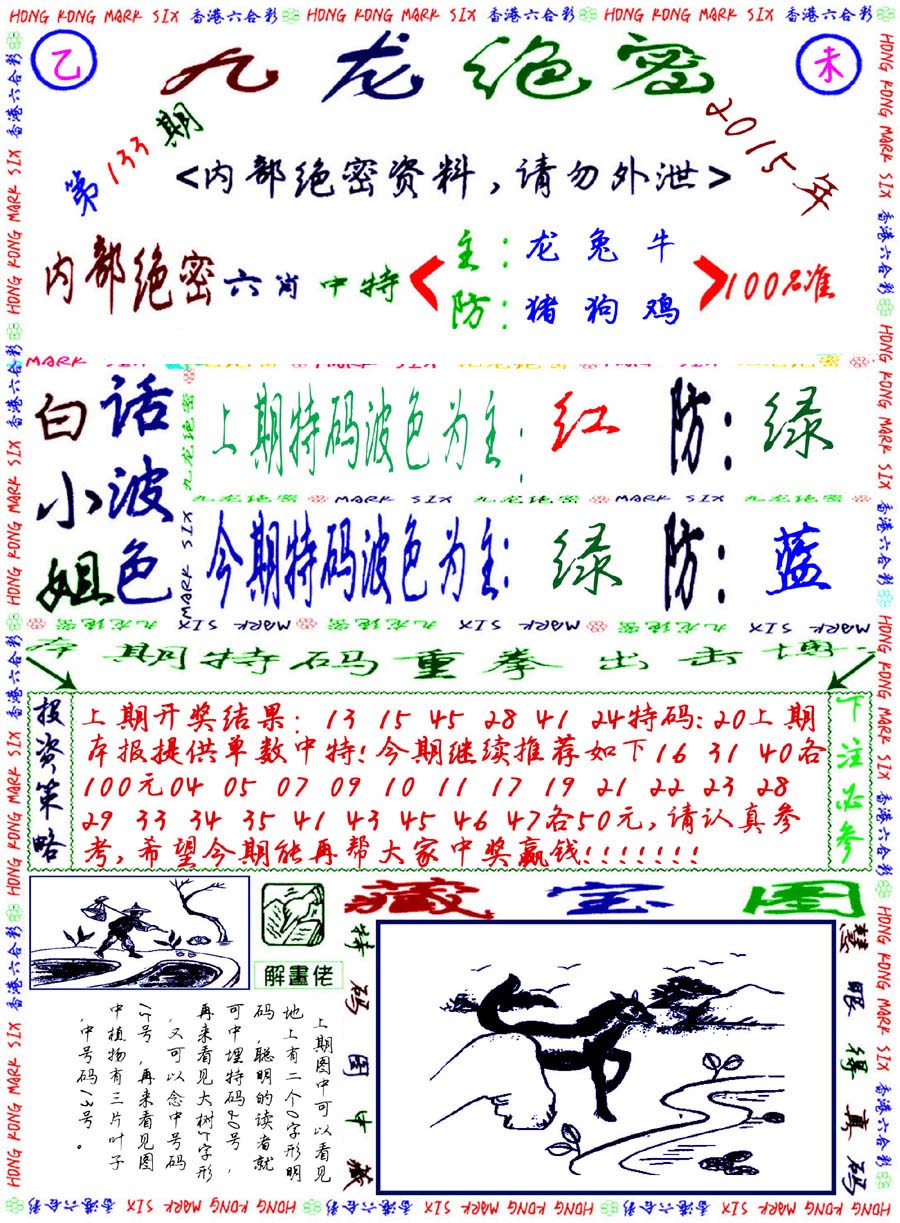 HONG KONG MARK SIX 香港六合彩 HONG KONG MARK SIX 香港六合彩 HONG KONG MARK SIX 香港六合彩
乙
九龙绝密
未
第133期
2015年
<内部绝密资料，请勿外泄>
内部绝密六肖中特
主：龙兔牛
防：猪狗鸡
100%准
白小姐
话波色
上期特码波色为主：红 防：绿
九龙绝密 MARK SIX 九龙绝密 MARK SIX 九龙绝密
今期特码波色为主：绿 防：蓝
本期特码重拳出击博
投资策略
上期开奖结果：13 15 45 28 41 24特码：20上期
本报提供单数中特！今期继续推荐如下16 31 40各
100元04 05 07 09 10 11 17 19 21 22 23 28
29 33 34 35 41 43 45 46 47各50元，请认真参
考，希望今期能再帮大家中奖赢钱！！！！！！！
下注必参
藏宝图
解畫佬
特码图中藏
慧眼得真码
上期图中可以看见
地上有二个0字形明
码，聪明的读者就
可中埋特码20号，
再来看见大树了字形
，又可以念中号码
17号，再来看见图
中植物有三片叶子
，中号码13号。
HONG KONG MARK SIX 香港六合彩 HONG KONG MARK SIX 香港六合彩 HONG KONG MARK SIX 香港六合彩